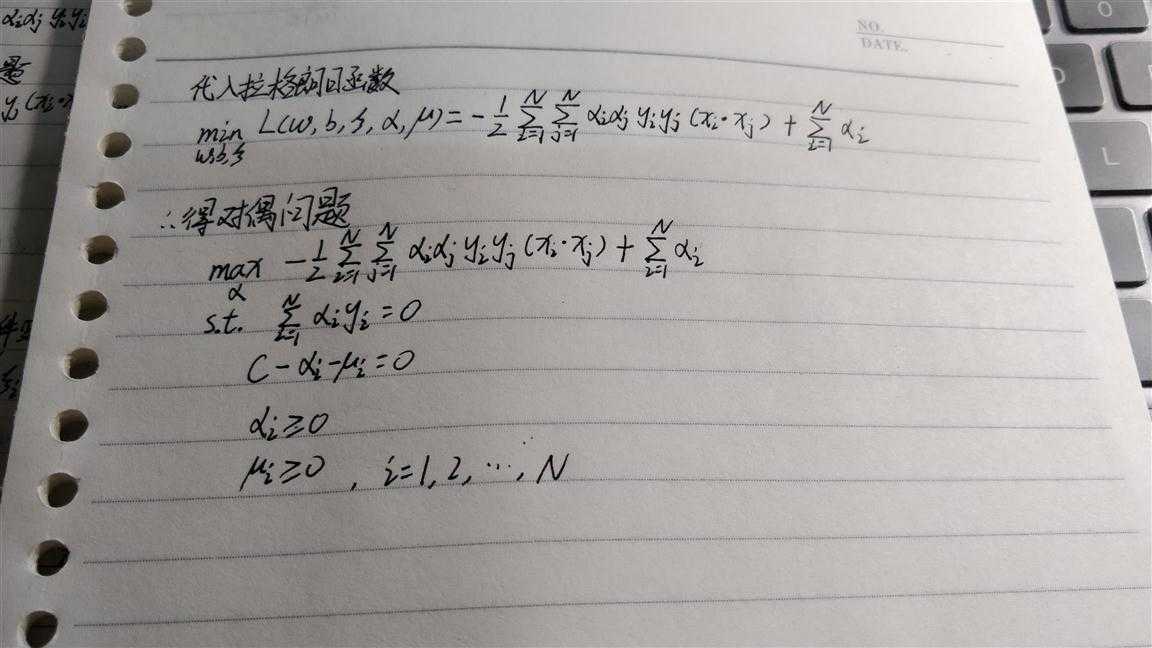 αiαj yiyj
题
yj(xi·x
NO.
DATE.
代入拉格朗日函数
min L(w,b,ξ,α,μ)=-1/2 ∑_{i=1}^N ∑_{j=1}^N αiαj yiyj (xi·xj) + ∑_{i=1}^N αi
w,b,ξ
∴得对偶问题
max -1/2 ∑_{i=1}^N ∑_{j=1}^N αiαj yiyj (xi·xj) + ∑_{i=1}^N αi
α
s.t. ∑_{i=1}^N αiyi=0
C-αi-μi=0
αi≥0
μi≥0 , i=1,2,…,N
O
L